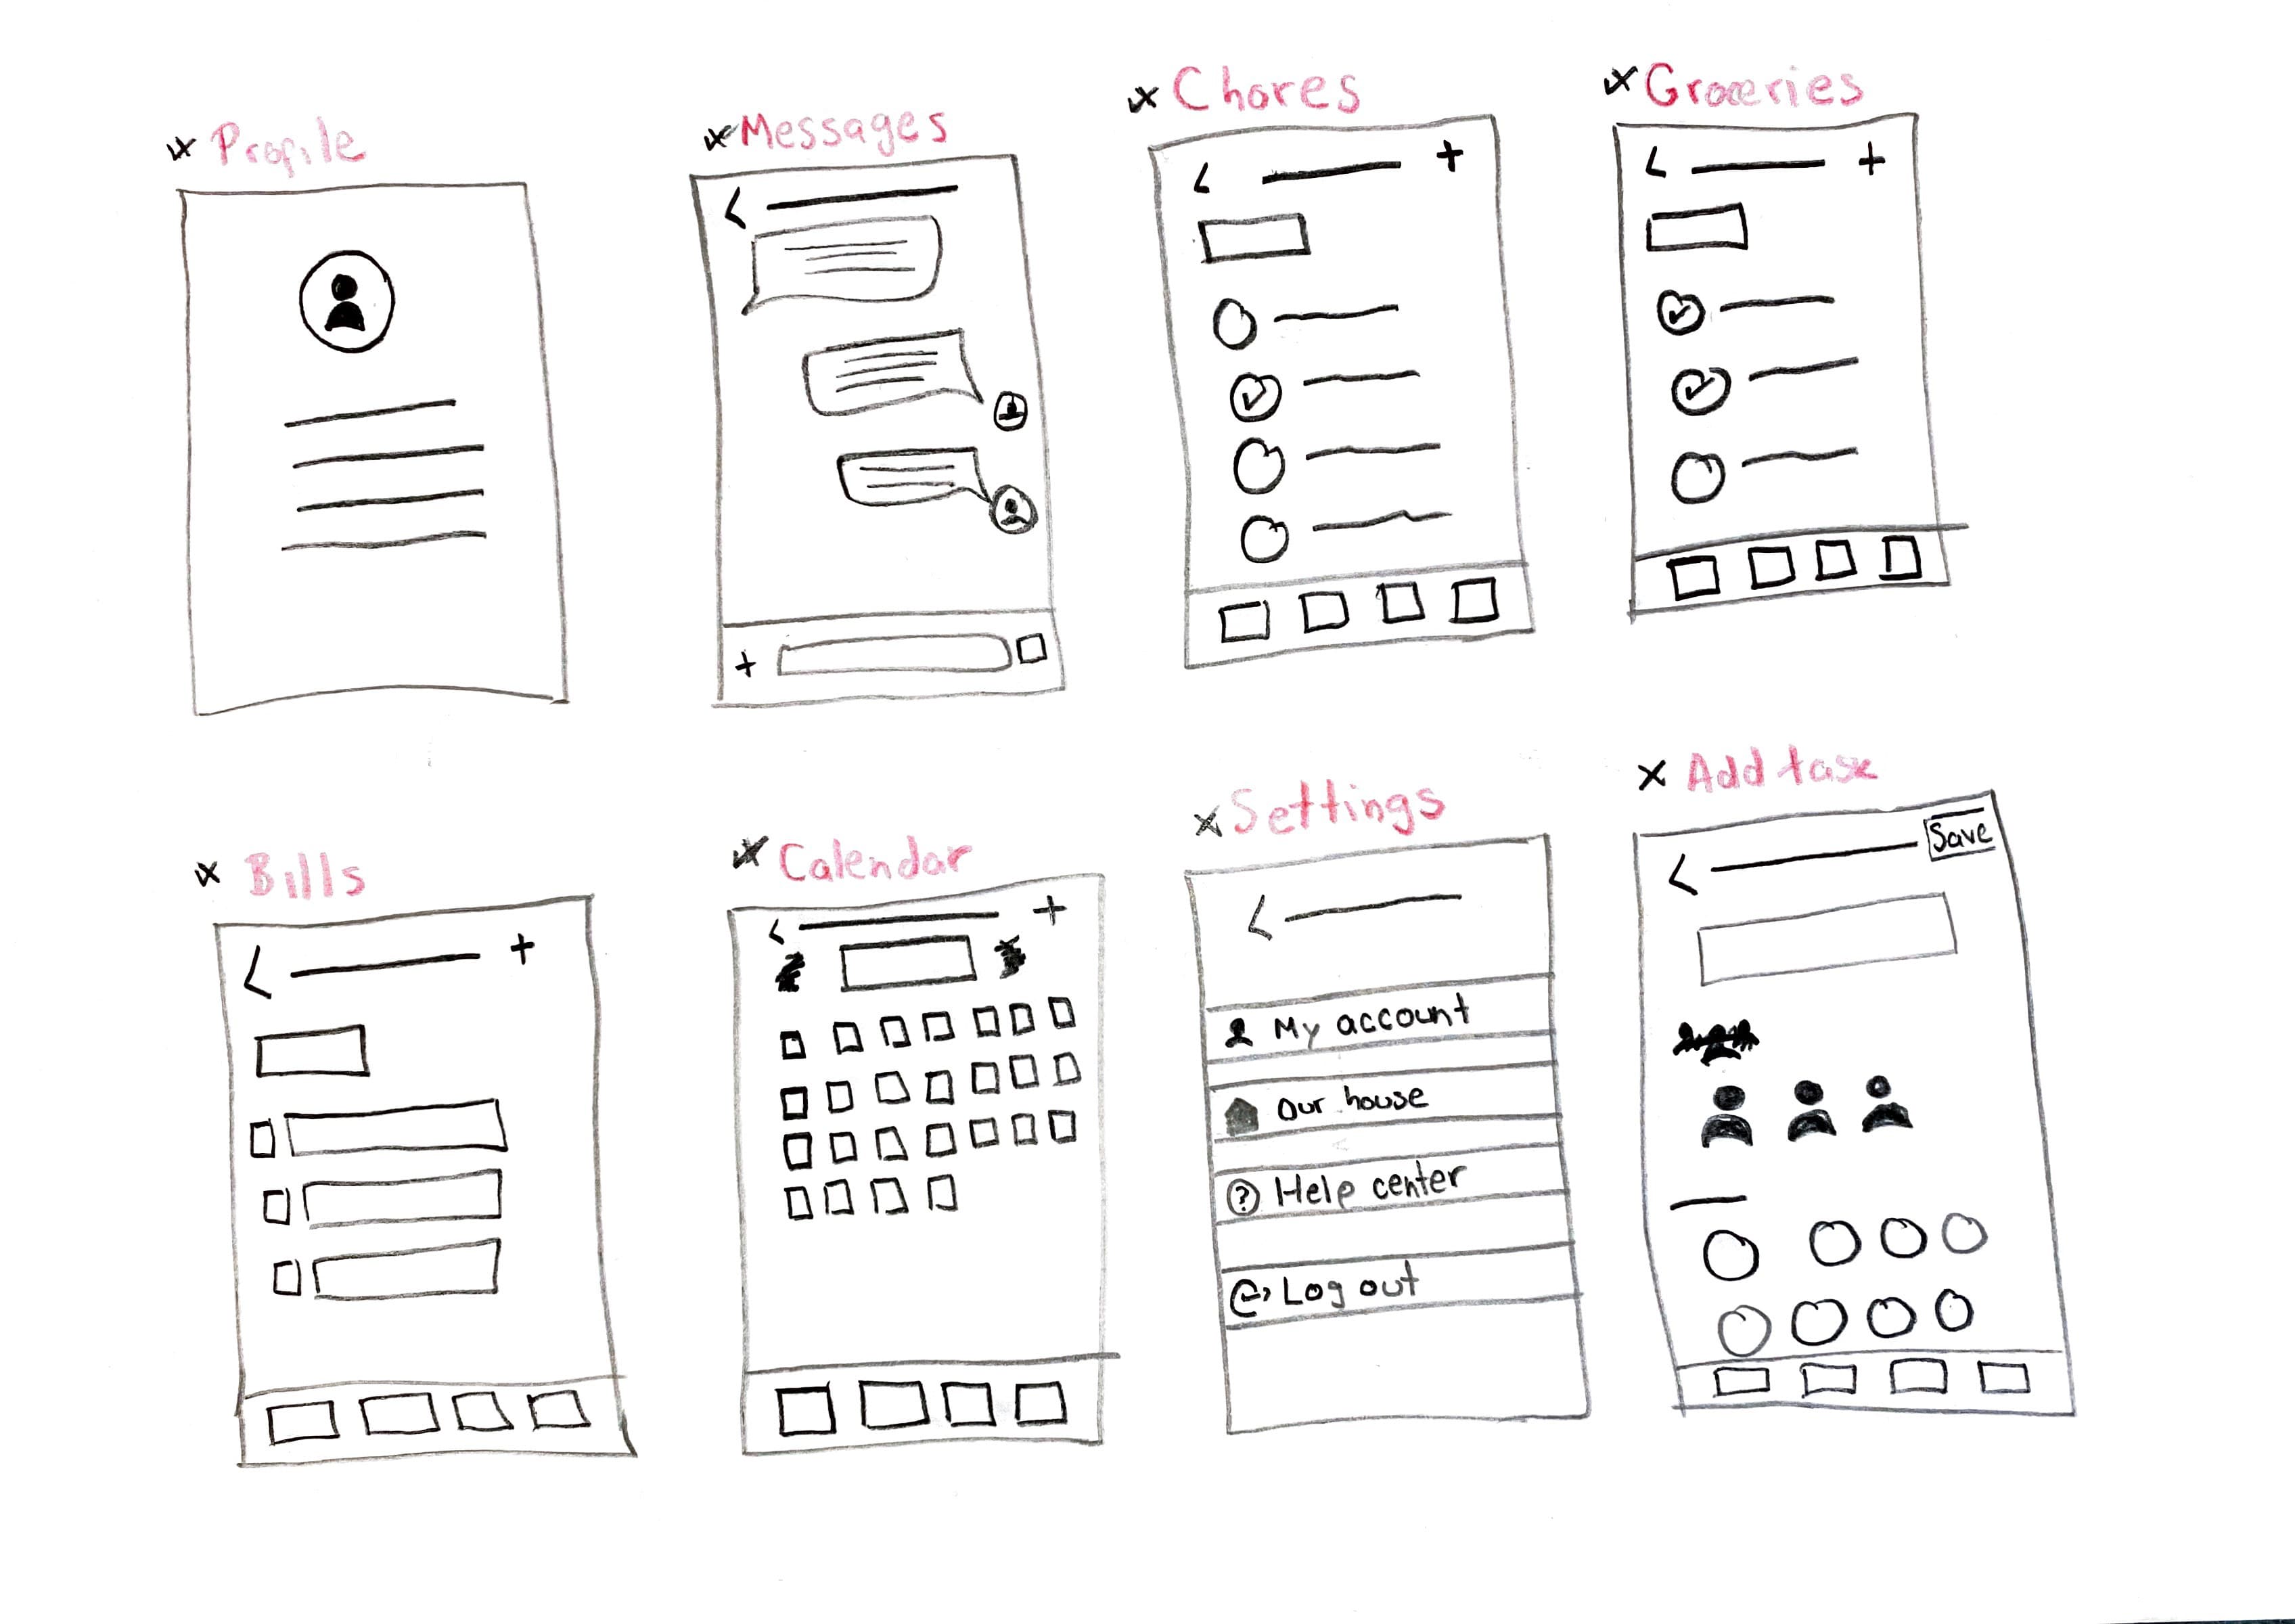 Profile
Messages
Chores
Groceries
Bills
Calendar
Settings
My account
Our house
? Help center
Log out
Add task
Save